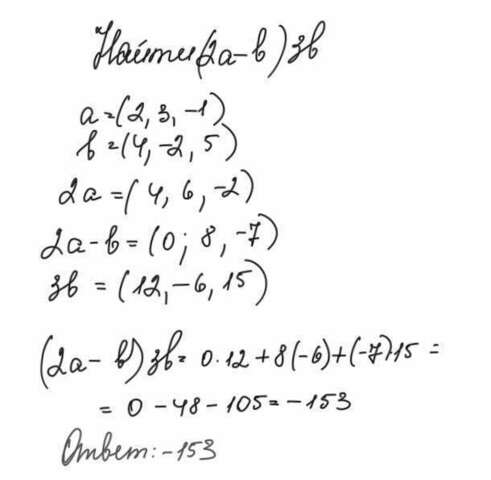 Найти (2a-b)3b
a=(2,3,-1)
b=(4,-2,5)
2a=(4,6,-2)
2a-b=(0;8,-7)
3b=(12,-6,15)
(2a-b)3b=0·12+8(-6)+(-7)·15=
=0-48-105=-153
Ответ:-153